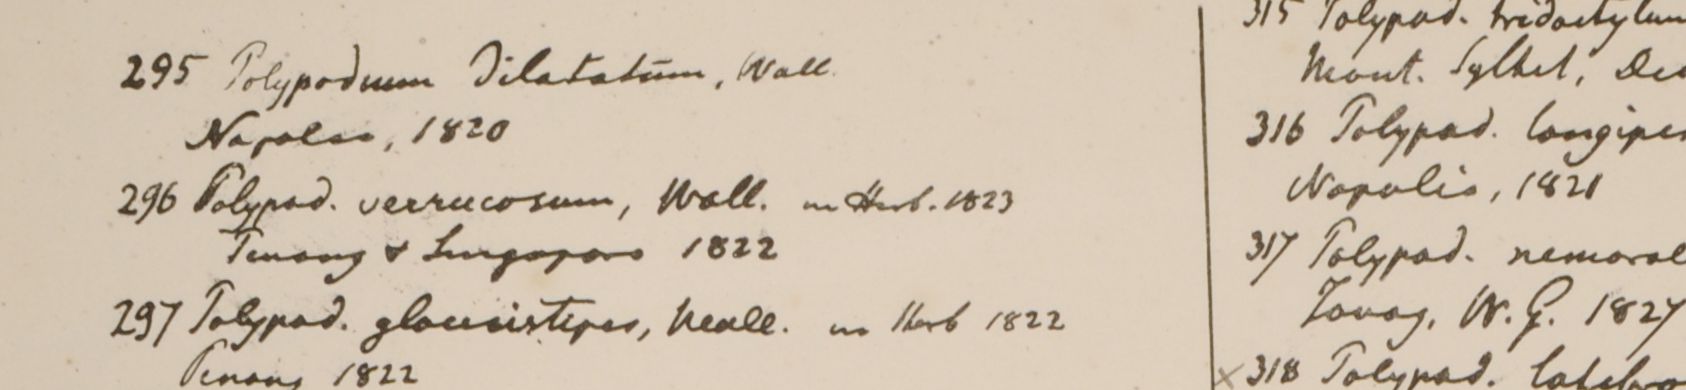 295 Polypodium Dilatatum, Wall.
Napalia, 1820
296 Polypod. verrucosum, Wall. in Herb. 1823
Penang & Singapore 1822
297 Polypod. glaucistipes, Wall. in Herb 1822
Penang 1822
315 Polypod. tridactylum
Mont. Sylhet,
316 Polypod. longipes
Napalia, 1821
317 Polypod. nemoral
Tavoy, W. G. 1827
× 318 Polypod.